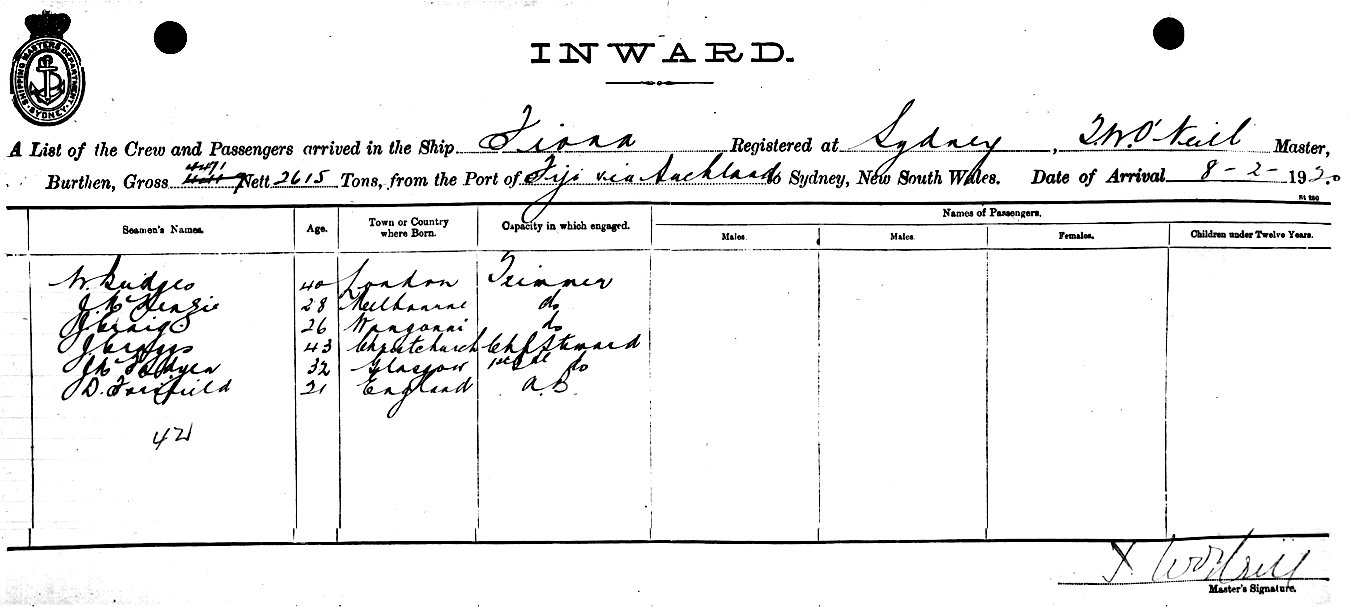 SHIPPING MASTERS DEPARTMENT SYDNEY
INWARD.
A List of the Crew and Passengers arrived in the Ship Fiona Registered at Sydney, T.W. O'Neill Master,
Burthen, Gross Nett 2615 Tons, from the Port of Fiji via Auckland to Sydney, New South Wales. Date of Arrival 8-2-1920
St 250
Names of Passengers.
Seamen's Names. Age. Town or Country where Born. Capacity in which engaged. Males. Males. Females. Children under Twelve Years.
W. 40 London Trimmer
J. McKenzie 28 Melbourne do
J. Craig 26 do
J. 43 Christchurch Chf Steward
32 Glasgow do
D. 21 England A.B.
42
Master's Signature.